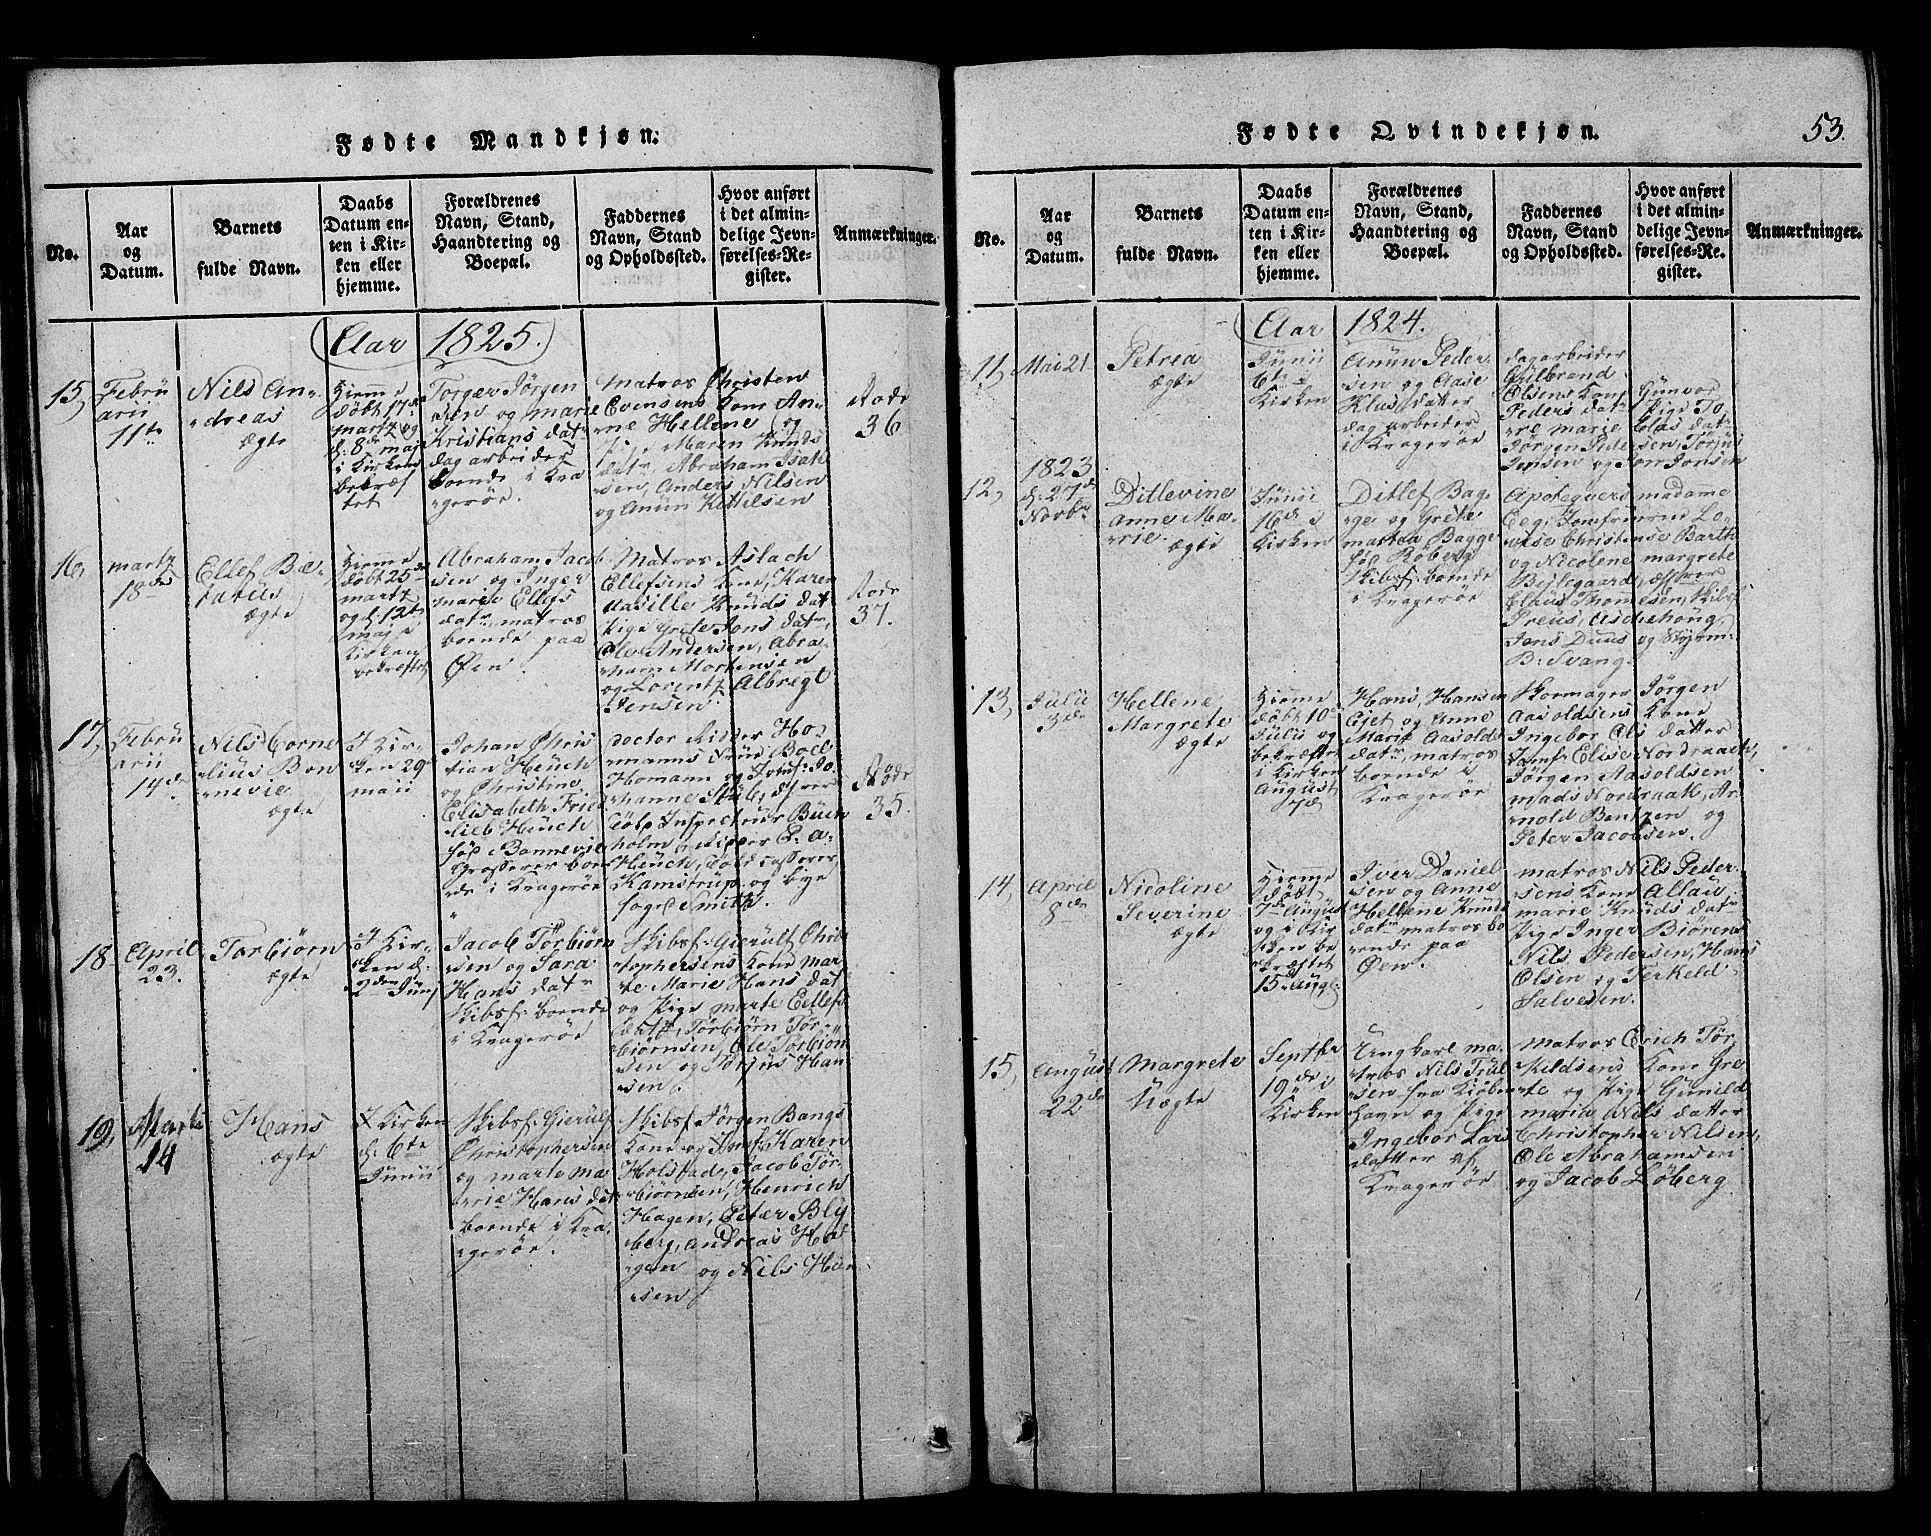 Fødte Mandkjøn.
No.
Aar
og
Datum.
Barnets
fulde Navn.
Daabs
Datum en-
ten i Kir-
ken eller
hjemme.
Forældrenes
Navn, Stand,
Haandtering og
Boepæl.
Faddernes
Navn, Stand
og Opholdssted.
Hvor anført
i det almin-
delige Jevn-
førelses-Re-
gister.
Anmærkninger.
(Aar 1825.)
15,
Febru
arii
11te
Nils An-
dreas
ægte
Hiemme
døbt 17de
martz og
d: 8de maj
i Kirken
bekræf
tet
Torgær Jörgen
sen og marie
Kristians datr
dagarbeider
boende i Kra
geröe.
Matros Christen
Evensens Kone An-
ne Hellene og
Pige Maren Knuds
datr, Abraham Isak
sen, Anders Nilsen
og Anun Kittilsen
Rode
36
16,
martz
18de
Ellef Be-
tatus
ægte
Hiemme
døbt 25de
martz
og d, 12te
maj i
Kirken
bekræftet
Abraham Jacob
sen og Inger
marie Ellefs
datr, matros
boende paa
Øen.
Matros Aslach
Ellefsens Kone, Karen
Aasille Knuds datr
Pige Grete Jens datr,
Ole Andersen, Abra
ham Mortensen
og Lorentz Albregt
Jensen.
Rode
37.
17,
Febru
arii
14de
Nils Corne
lius Bon
nevie
ægte
I Kir-
ken 29de
maii
Johan Chris
tian Heuch
og Christine
Elisabeth Fried
lieb Heuch
fød Bonnevie
Grosserer boen
de i Kragerøe
Doctor Ridder Ho-
manns Frue Boel
Homann og Jomf: Jo-
hanne Stub,
Told Inspecteur Buch
holm, Ridder P. A.
Heuch, Told casserer
Kamstrup og bye
foged Smith.
Rode
35.
18
April
23.
Torbiørn
ægte
I Kir-
ken d:
2den Junj
Jacob Torbiørn
sen og Sara
Hans datr
Skibsf: boende
i Kragerøe
Skibsf: Gierulf Chris
tophersens Kone Mar-
te Marie Hans dat
og Pige marte Ellefs
datr, Torbiørn Tor-
biørnsen, Ole Torbiørn
sen og Torjus Han
sen.
19,
Martz
14
Hans
ægte
I Kirken
d: 6te
Junii
Skibsf: Gierulf
Christophersen
og marte ma-
rie Hans dat
boende i Kra-
gerøe.
Skibsf: Jørgen Bangs
Kone og Jomf: Karen
Holstad, Jacob Tor-
biørnsen, Henrich
Hagen, Peter Bly
berg, Andreas Ha
gen og Nils Han
sen
Fødte Qvindekjøn.
53.
No.
Aar
og
Datum.
Barnets
fulde Navn.
Daabs
Datum en-
ten i Kir-
ken eller
hjemme.
Forældrenes
Navn, Stand,
Haandtering og
Boepæl.
Faddernes
Navn, Stand
og Opholdssted.
Hvor anført
i det almin-
delige Jevn-
førelses-Re-
gister.
Anmærkninger.
(Aar 1824.
11,
Mai 21
Petrea
ægte
Junii
6te i
Kirken
Anun Peder-
sen og Aase
Klas datter
dag arbeider
i Kragerøe
dagarbeider
Gulbrand
Olsens Kone Gunvor
Peders dat Pige To-
re marie Clas dat
Jørgen Pedersen, Torjus
Jensen og Jon Jonsen
12,
1823
d: 27de
Novbr
Ditlevine
Anne Ma-
rie
ægte
Junii
16de i
Kirken
Ditlef Bag-
ge og Grete
martea Bagge
fød Böberg
Skibsf: boende
i Kragerøe
Apotequers madamme
Eeg, Jomfruerne Lo-
vise Christense Barth
og Nicolene margrete
Bejlegaard,
Claus Thommesen, Skibsf
Preus, Aschehoug,
Jens Duus og Styrm:
B: Svang
13,
Julii
3de
Hellene
Margrete
ægte
Hiemme
døbt 10de
Julii og
bekræftet
i Kirken
August
7de
Hans Hansen
Ejet og Anne
Marie Aasolds
datr, matros
boende i
Kragerøe
Skomager Jørgen
Aasoldsens Kone
Ingebor Ols datter
Jomf: Elise Nordraach,
Jørgen Aasoldsen
mads Nordraak, Ar-
nold Bentzen og
Peter Jacobsen.
14,
April
8de
Nicoline
Severine
ægte
Hiemme
døbt
7de August
og i Kir
ken be
kræftet
15 Aug:
Iver Daniel
sen og Anne
Hellene Knuds
datr matros bo
ende paa
Øen.
matros Nils Peder-
sens Kone Allau
marie Knuds datr
Pige Inger Biørens
Nils Pedersen, Hans
Olsen og Terkeld
Salvesen.
15,
August
22de
Margrete
Uægte
Septbr
19de i
Kirken
Ungkarl ma-
tros Nils Trul
sen fra Kiøben
havn og Pige
Ingebor Lars
datter af
Kragerøe
matros Erich Tor
kildsens Kone Gre
te og Pige Gunild
maria Nils datter
Christopher Nilsen,
Ole Abrahamsen
og Jacob Löberg